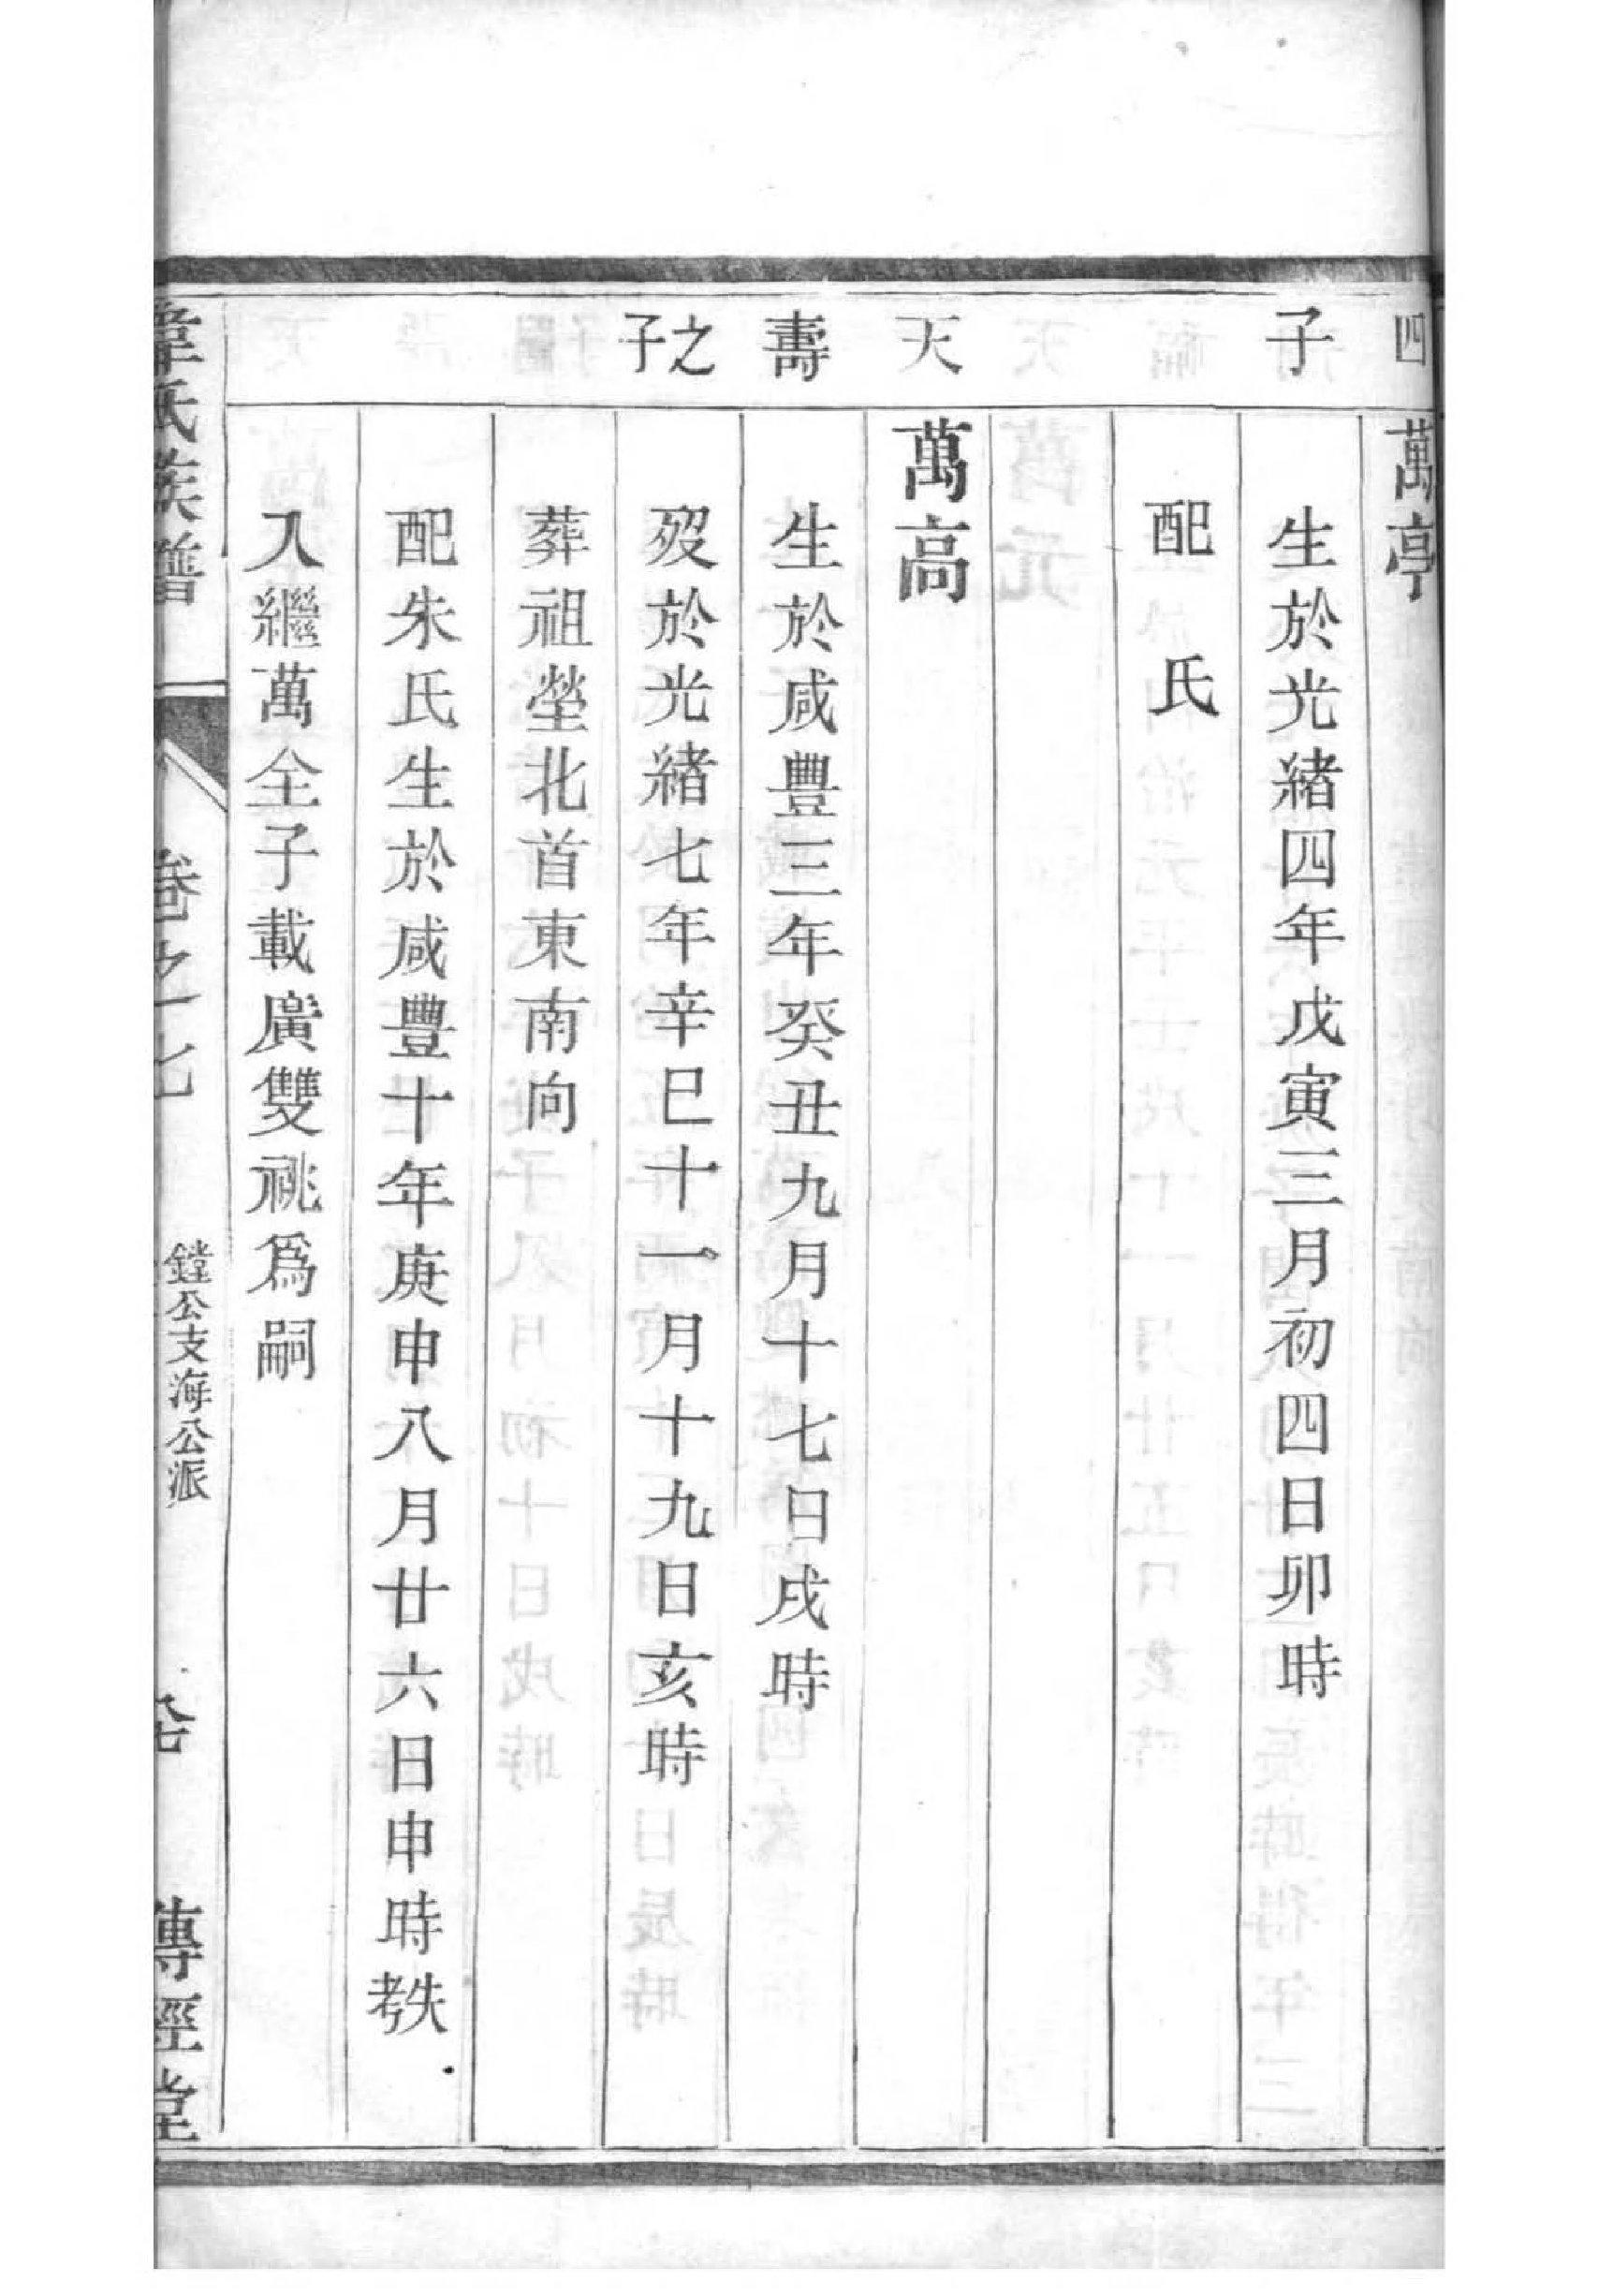 四子
萬亭
生於光緒四年戊寅三月初四日卯時
配　氏
天壽之子
萬高
生於咸豐三年癸丑九月十七日戌時
歿於光緒七年辛巳十一月十九日亥時
葬祖塋北首東南向
配朱氏生於咸豐十年庚申八月廿六日申時
入繼萬全子載廣雙祧爲嗣
韋氏族譜
卷之七
鏜公支海公派
傳經堂